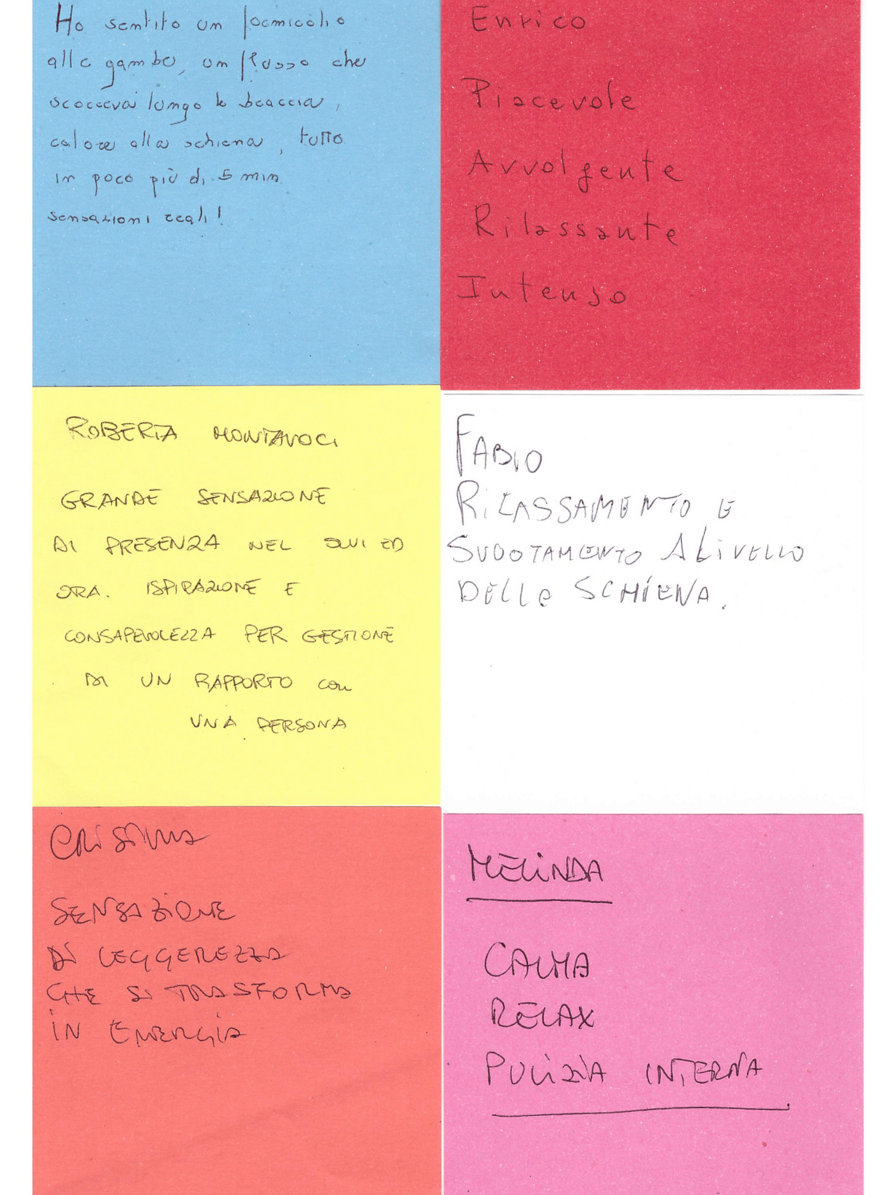 Ho sentito un formicolio
alle gambe, un flusso che
scorreva lungo le braccia,
calore alla schiena, tutto
in poco più di 5 min
sensazioni reali!
Enrico
Piacevole
Avvolgente
Rilassante
Intenso
ROBERTA MONTAVOCI
GRANDE SENSAZIONE
DI PRESENZA NEL QUI ED
ORA. ISPIRAZIONE E
CONSAPEVOLEZZA PER GESTIONE
DI UN RAPPORTO con
UNA PERSONA
FABIO
RILASSAMENTO E
SVUOTAMENTO A LIVELLO
DELLE SCHIENA.
CRISTINA
SENSAZIONE
DI LEGGEREZZA
CHE SI TRASFORMA
IN ENERGIA
MELINDA
CALMA
RELAX
PULIZIA INTERNA